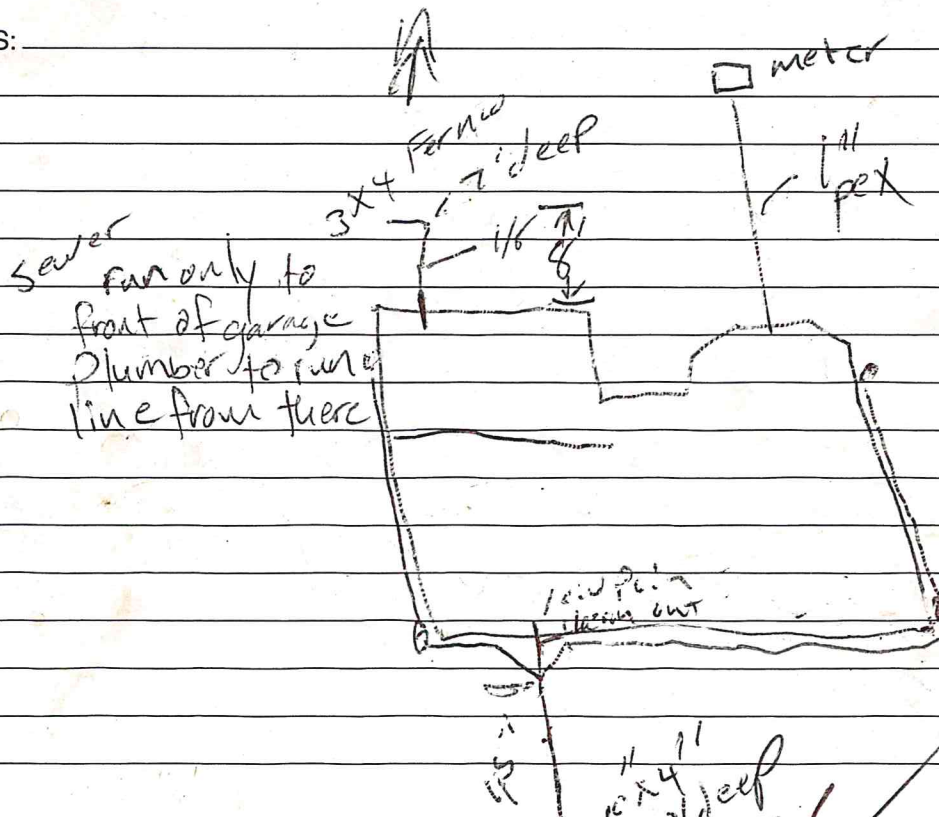 S:
N
meter
3x4 Fernco
7' deep
1" pex
8'
Sewer
run only to
front of garage
Plumber to run
line from there
out
6"x4"
deep